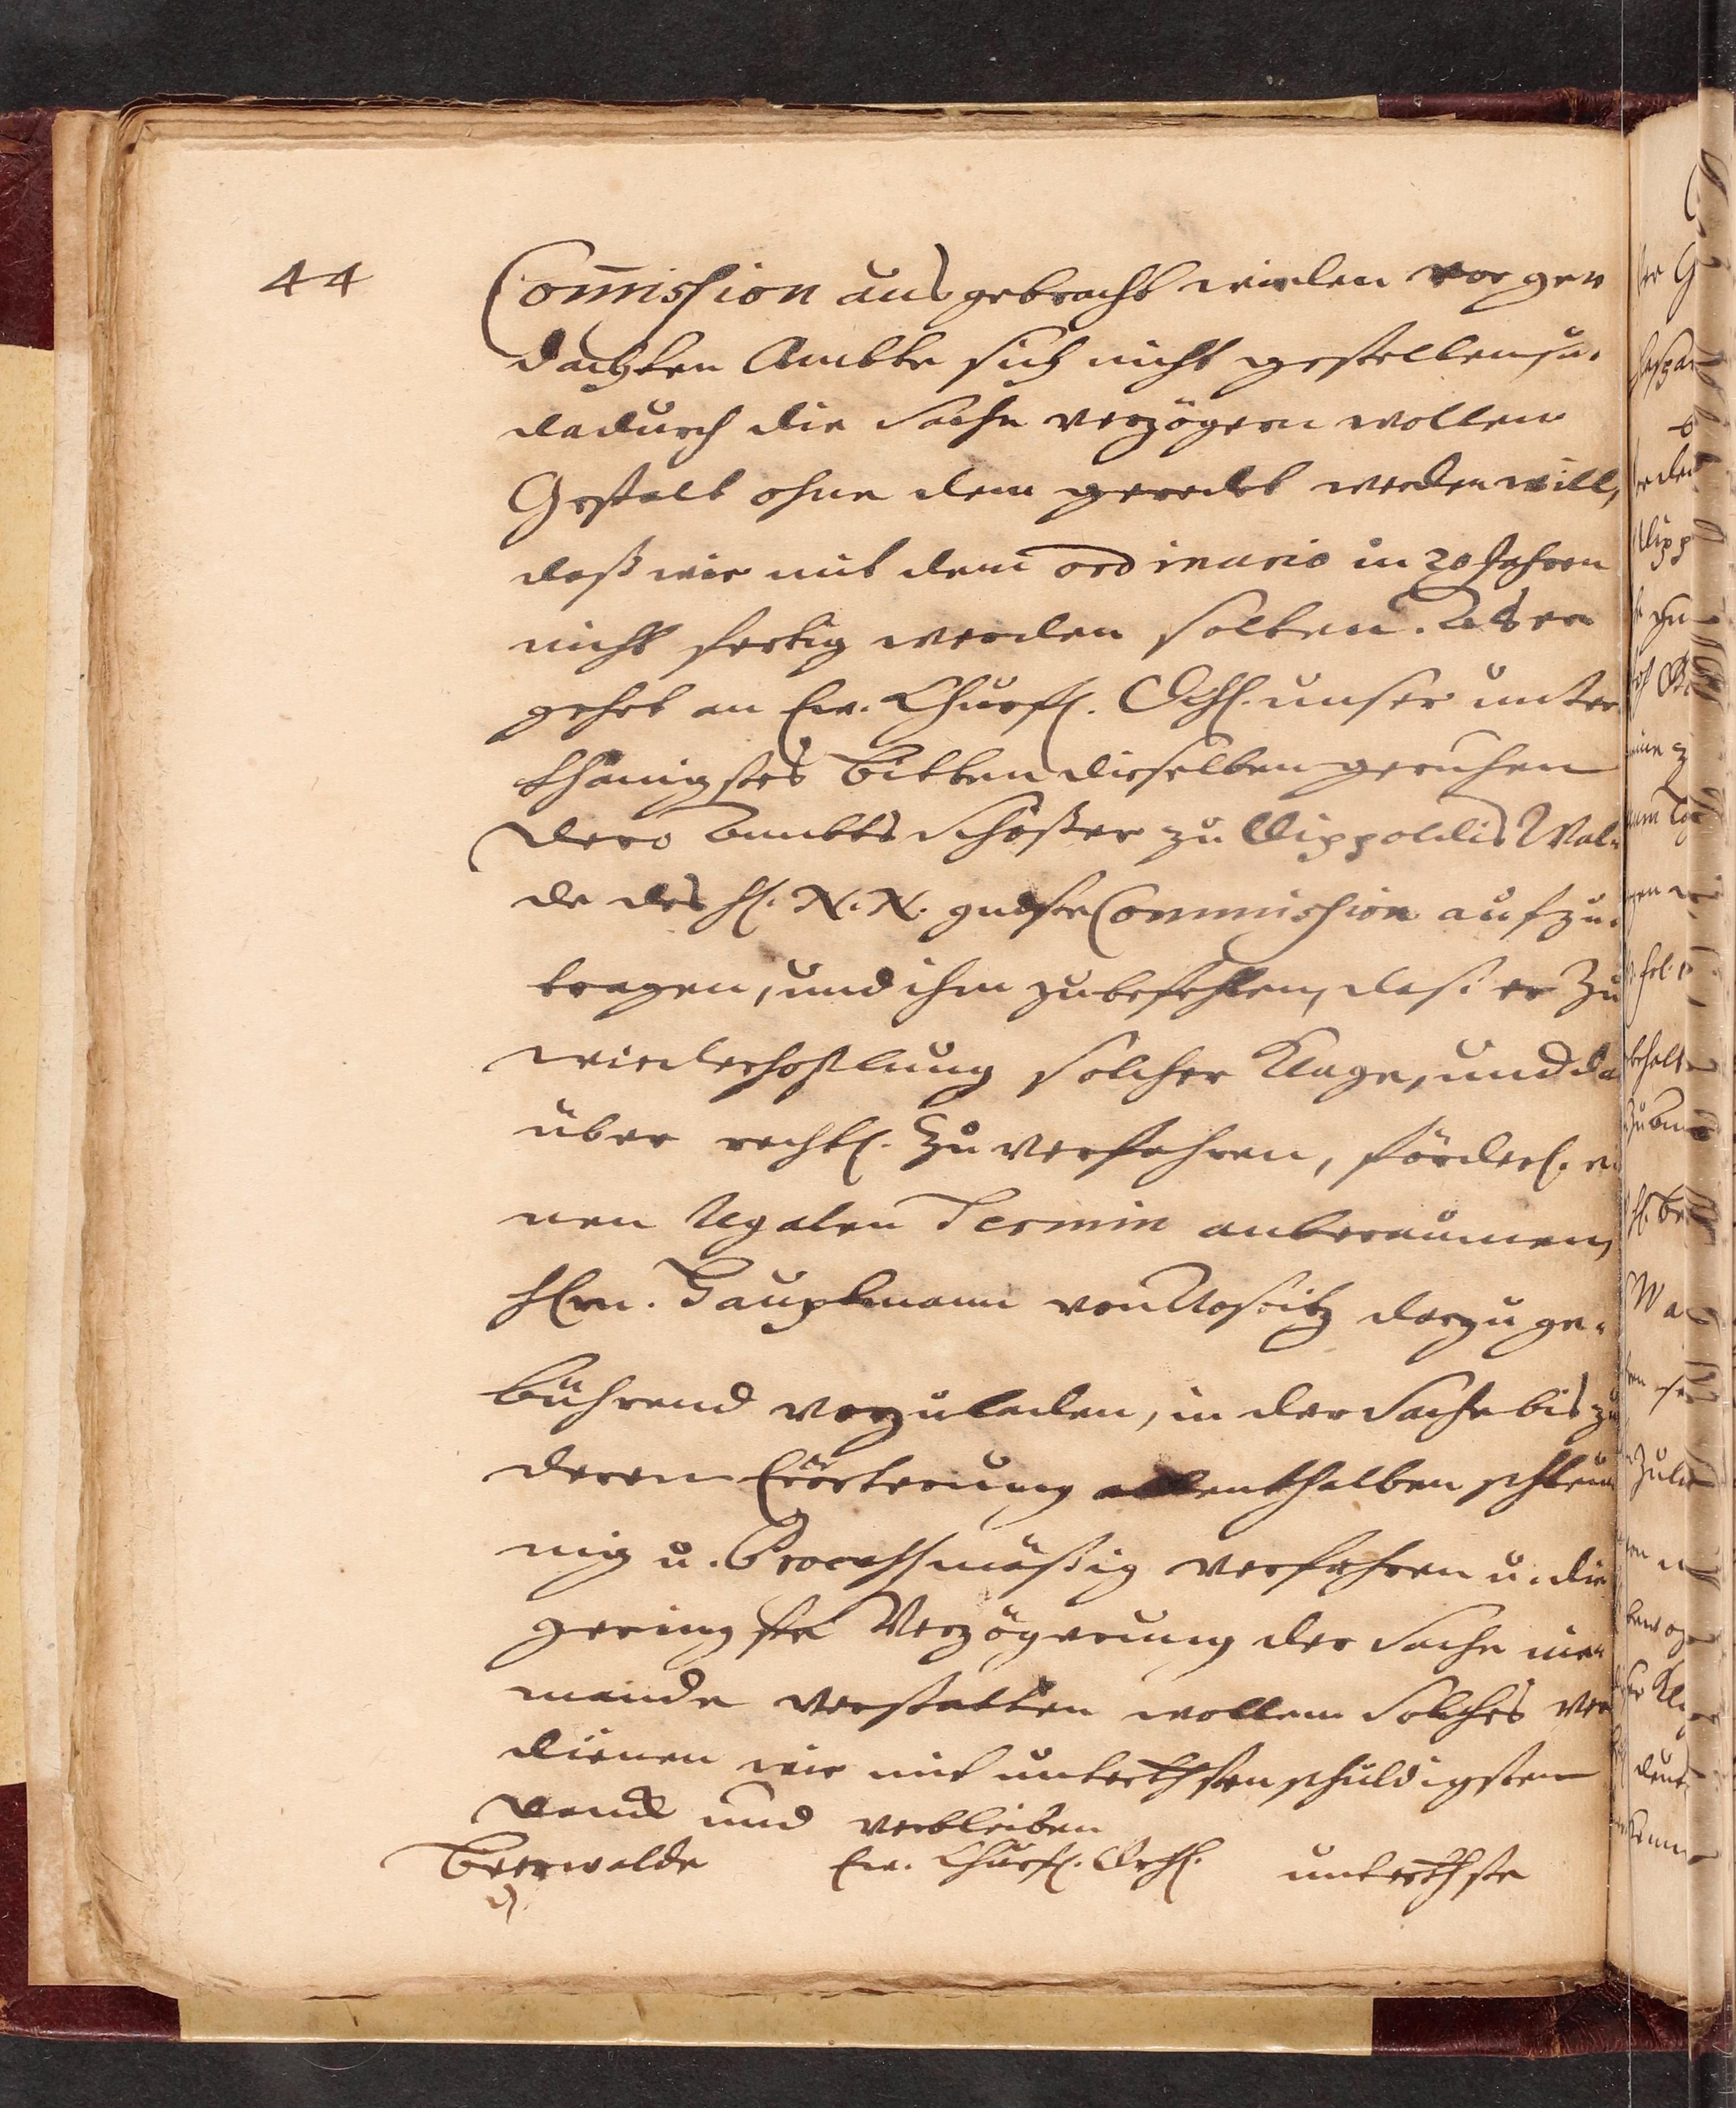 44
Com̄ission ausgebracht würden vorge⸗
dachten Ambte sich nicht gestellen, u.
dadurch die Sache verzögern wollen
Gestalt ohne dem geredet werden will,
daß wir mit dem ordinario in 20 Jahren
nicht fertig werden solten. Alß er
gehet an Ew. Churfl. Dchl. unser unter⸗
thänigstes Bitten, dieselben geruhen
Dero Ambts Schößer zu Dippoldis Wal⸗
de des H. N. N. gndste Commission aufzu⸗
tragen, und ihm zubefehlen, daß er zu
wiederhohlung solcher Klage, und da
über rechtl. zu verfahren, förderl. ei
nen legalen Termin anberaumen,
Hrn. Hauptmann von Nostitz darzu ge⸗
bührend vorzuladen, in der Sache bis zu
deren Erörterung allenthalben schleu
nig u. Processmäßig verfahren u. die
geringste Verzögerung der Sache nie⸗
mande verstatten wollen. Solches ver
dienen wir mit unterthsten schuldigsten
Danck und verbleiben
Beerwalde Ew. Churfl. Dchl. unterthste